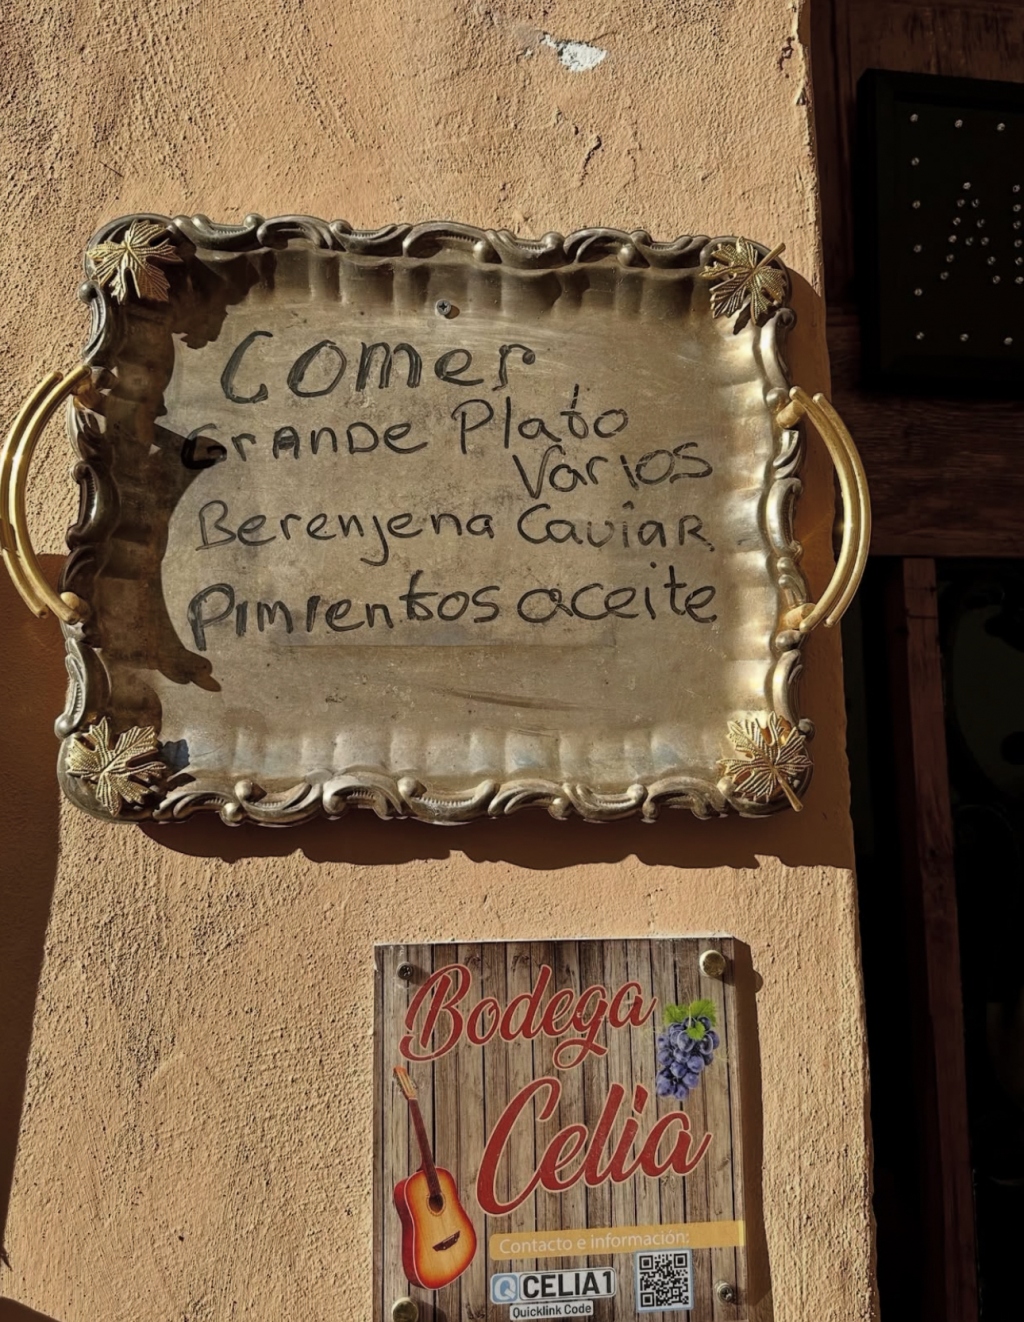 Comer
Grande Plato
Varios
Berenjena Caviar
Pimientos aceite
Bodega
Celia
Contacto e información:
Q CELIA1
Quicklink Code